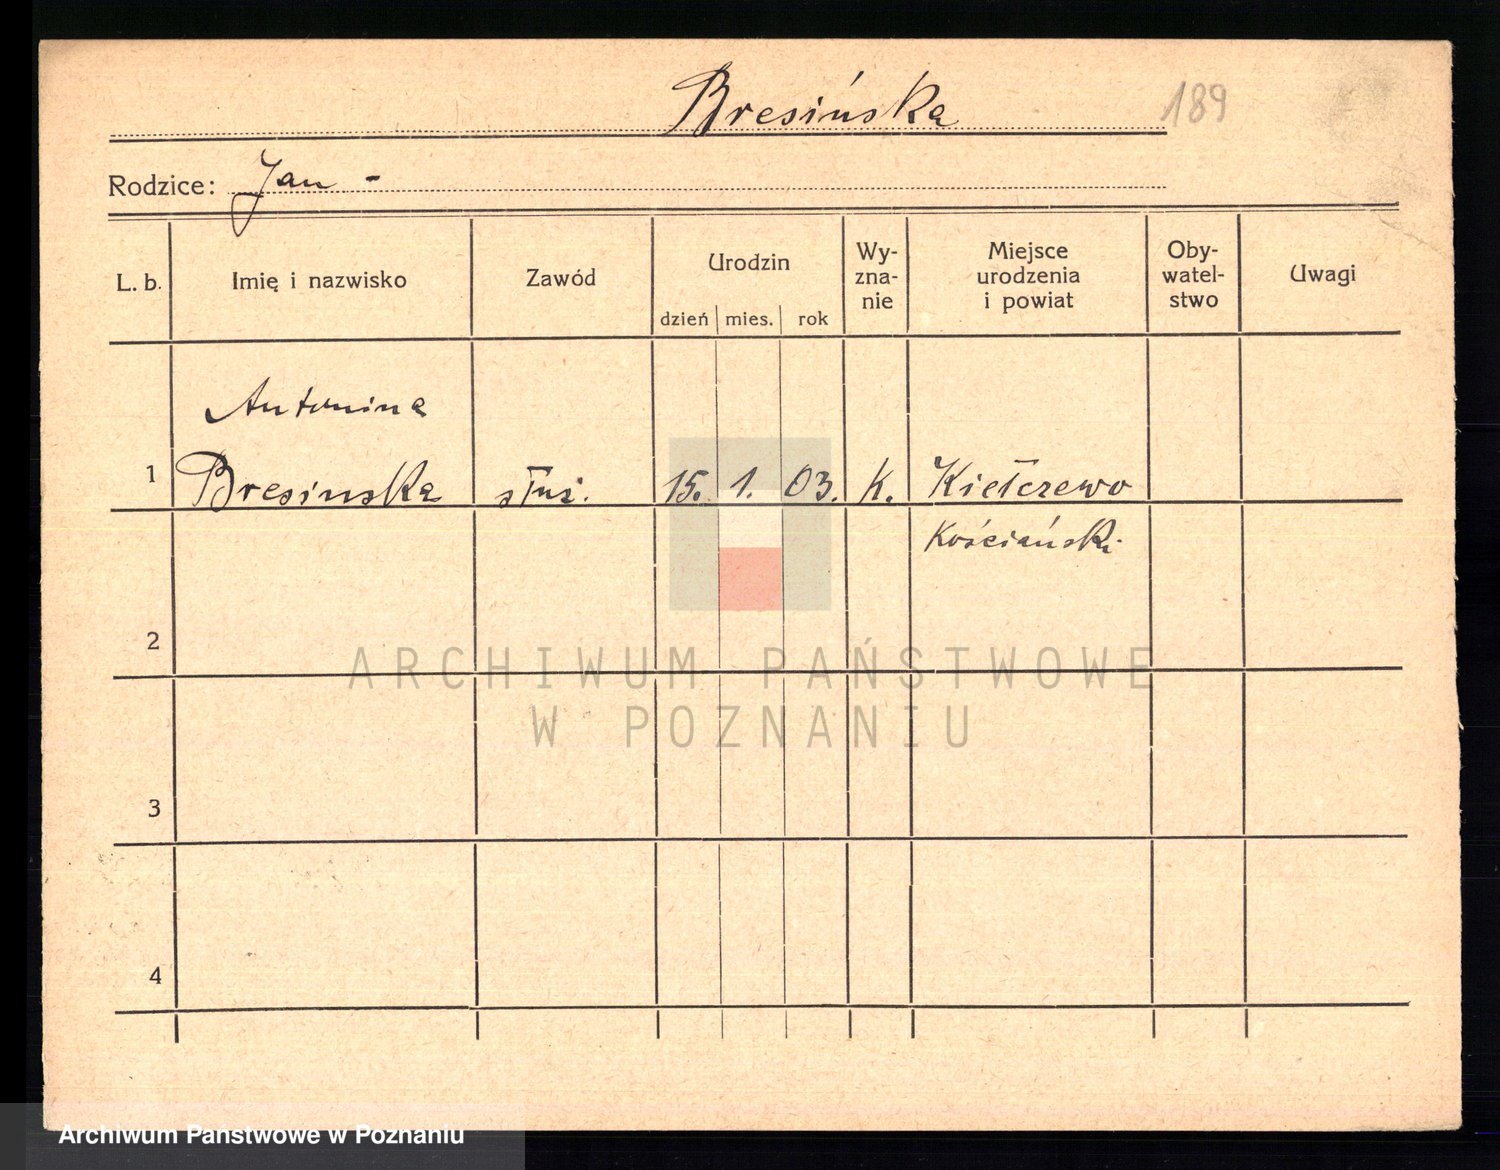 Bresińska 189
Rodzice: Jan -
L. b. Imię i nazwisko Zawód Urodzin dzień mies. rok Wy-zna-nie Miejsce urodzenia i powiat Oby-watel-stwo Uwagi
Antonina
1 Bresinska służ. 15. 1. 03. K. Kiełczewo
Kościański
2
ARCHIWUM PAŃSTWOWE
W POZNANIU
3
4
Archiwum Państwowe w Poznaniu